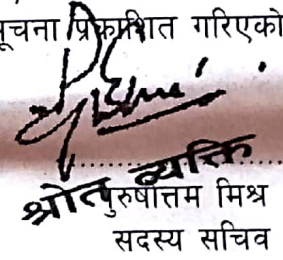 सूचना प्रकाशित गरिएको
श्रोत व्यक्ति
पुरुषोत्तम मिश्र
सदस्य सचिव